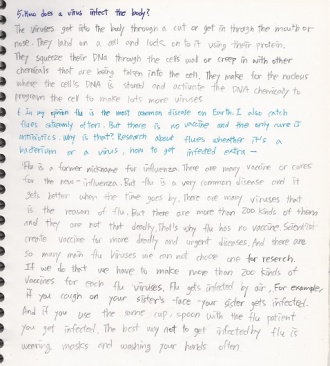 5. How does a virus infect the body?
The viruses get into the body through a cut or get in through the mouth or
nose. They land on a cell and locks onto it using their protein.
They squeeze their DNA through the cells wall or creep in with other
chemicals that are being taken into the cell. They make for the nucleus
where the cell's DNA is stored and activate the DNA chemically to
program the cell to make lots more viruses
6 In my opinion flu is the most common disease on Earth. I also catch
flues extremely often. But there is no vaccine and the only cure is
antibiotics. why is that? Research about flues whether it's a
bacterium or a virus, how to get infected extra —
Flu is a former nickname for influenza. There are many vaccine or cures
for the new-influenza. But flu is a very common disease and it
gets better when the time goes by. There are many viruses that
is the reason of flu. But there are more than 200 kinds of them
and they are not that deadly. That's why flu has no vaccine. Scientist
create vaccine for more deadly and urgent diseases. And there are
so many main flu viruses we can not choose one for reserch.
If we do that we have to make more than 200 kinds of
vaccines for each flu viruses. Flu gets infected by air. For example,
if you cough on your sister's face your sister gets infected.
And if you use the same cup, spoon with the flu patient
you get infected. The best way not to get infected by flu is
wearing masks and washing your hands often